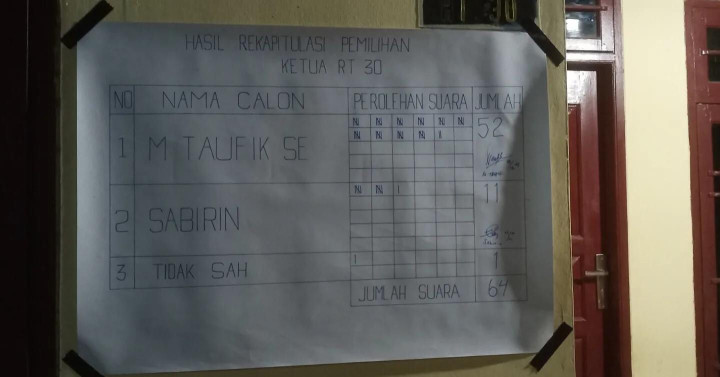 HASIL REKAPITULASI PEMILIHAN
KETUA RT 30
NO NAMA CALON PEROLEHAN SUARA JUMLAH
1 M TAUFIK SE 52
2 SABIRIN 11
3 TIDAK SAH 1
JUMLAH SUARA 64